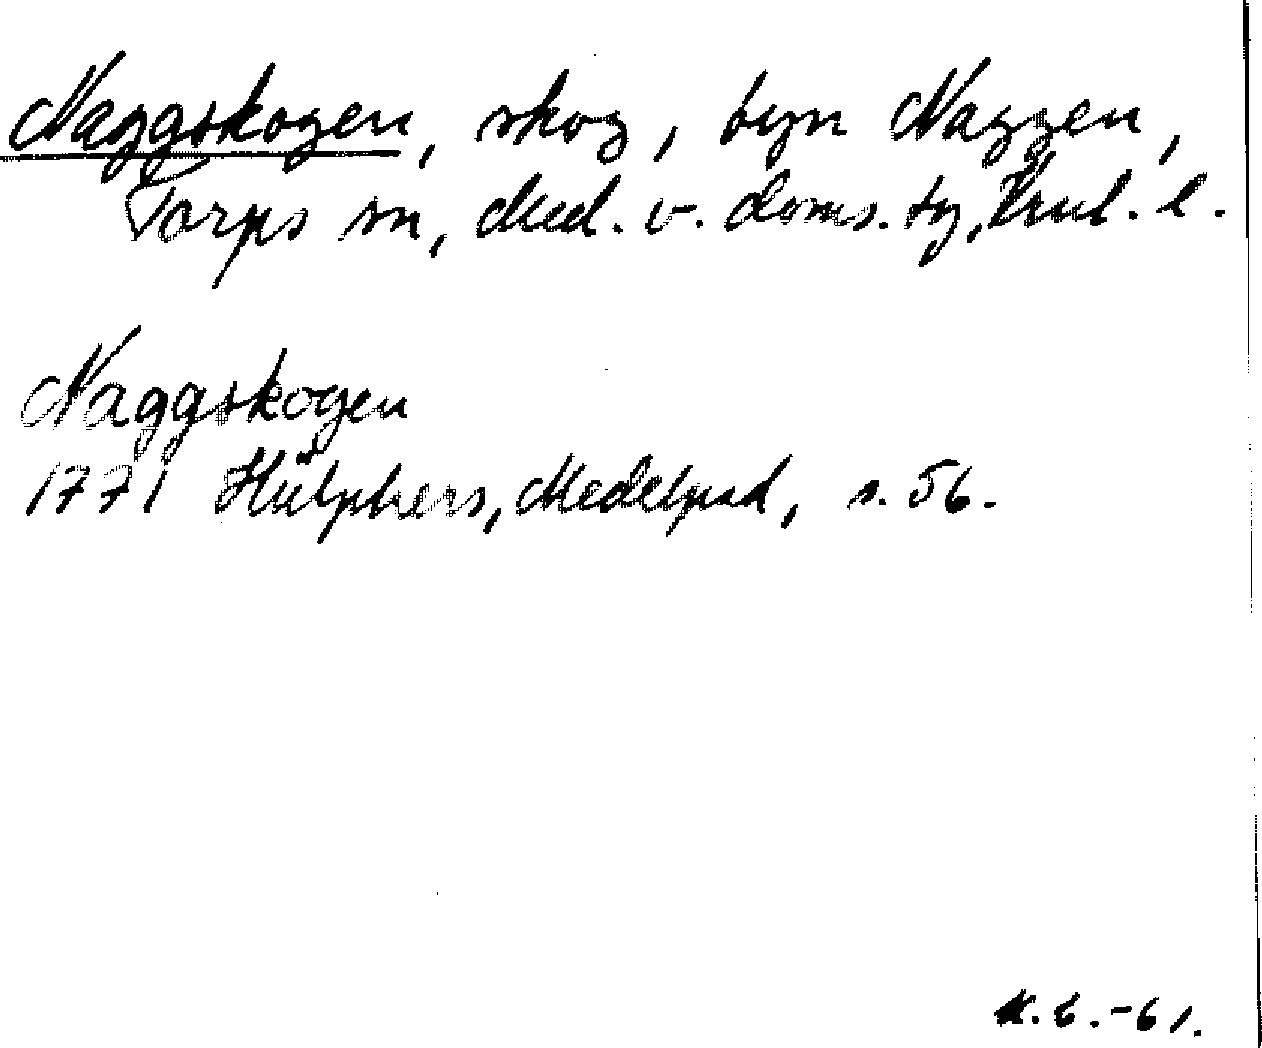 Naggskogen, skog, byn Naggen,
Torps sn, Med. v. doms. tg, Vnl. l.
Naggskogen
1771 Hülphers, Medelpad, s. 56.